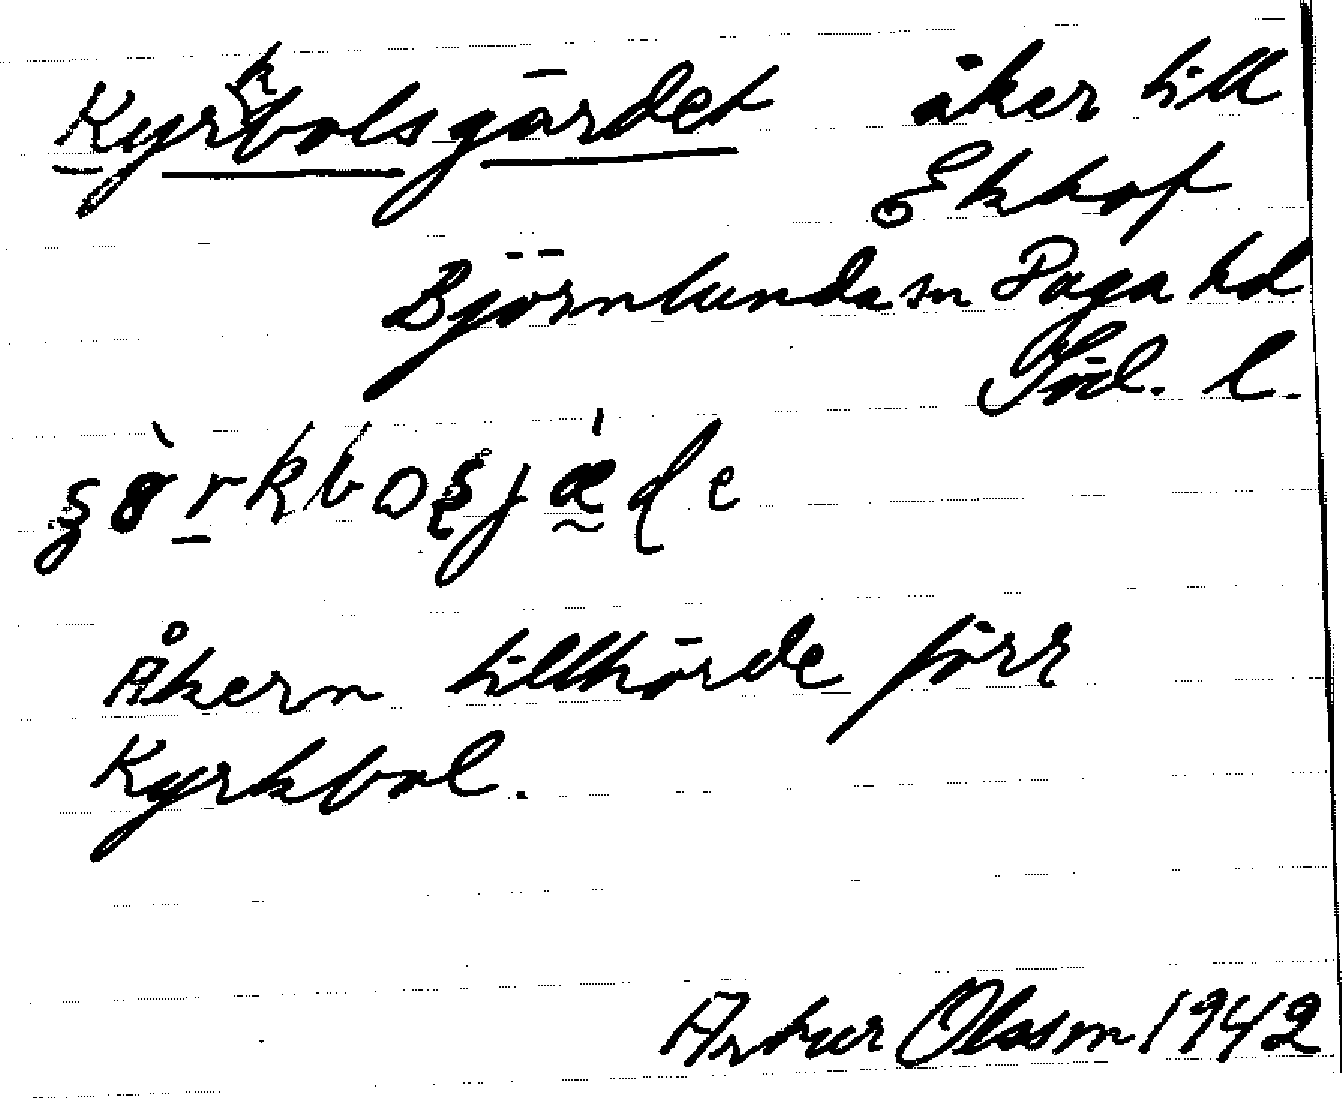 Kyrkbolsgärdet åker till
Ekhof
Björnlunda sn Daga hd
Söd. l.
Åkern tillhörde förr
Kyrkbol.
Artur Olsson 1942